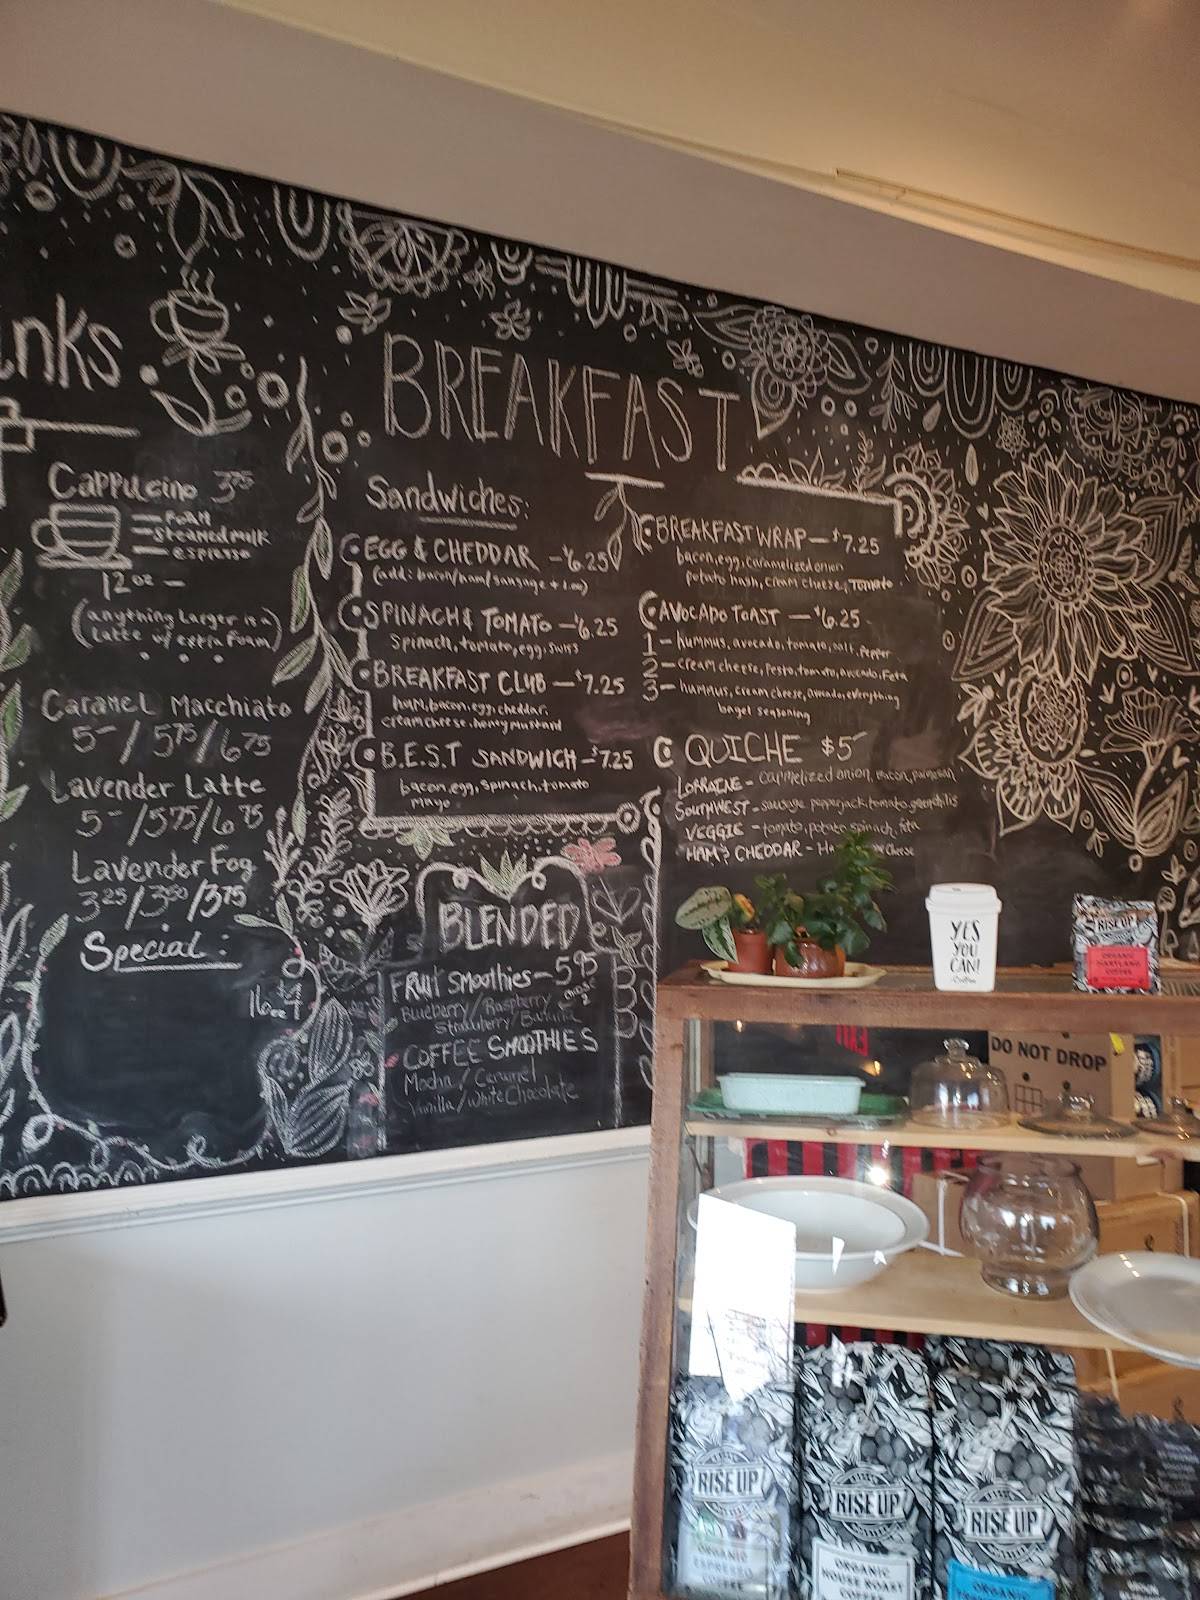 nks
Cappucino 3.75
foam
steamed milk
espresso
12 oz —
(anything larger is a
latte w/ extra foam)
Caramel Macchiato
5-/5.75/6.75
Lavender Latte
5-/5.75/6.75
Lavender Fog
3.25/3.50/3.75
Special:
16oz
BREAKFAST
Sandwiches:
EGG & CHEDDAR - $6.25
(add: bacon/ham/sausage +1.00)
SPINACH & TOMATO - $6.25
Spinach, tomato, egg, swiss
BREAKFAST CLUB - $7.25
ham, bacon, egg, cheddar,
cream cheese, honey mustard
B.E.S.T SANDWICH - $7.25
bacon, egg, spinach, tomato
mayo
BREAKFAST WRAP - $7.25
bacon, egg, caramelized onion
potato hash, cream cheese, tomato
AVOCADO TOAST - $6.25
1 - hummus, avocado, tomato, salt, pepper
2 - cream cheese, pesto, tomato, avocado, feta
3 - hummus, cream cheese, avocado, everything
bagel seasoning
QUICHE $5-
LORRAINE - carmelized onion, bacon, parmesan
SOUTHWEST - sausage, pepperjack, tomato, green chilis
VEGGIE - tomato, potato, spinach, feta
HAM & CHEDDAR - Cheese
BLENDED
FRUIT SMOOTHIES - 5.95
choose 2
Blueberry / Raspberry
Strawberry / Banana
COFFEE SMOOTHIES
Mocha / Caramel
Vanilla / White Chocolate
YES
YOU
CAN!
RISE UP
ORGANIC
MARYLAND
COFFEE
DO NOT DROP
RISE UP
ORGANIC
ESPRESSO
COFFEE
RISE UP
ORGANIC
HOUSE ROAST
COFFEE
RISE UP
ORGANIC